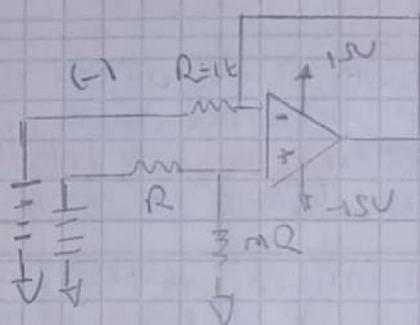 (-)
R=1k
15V
-
+
-15V
R
mR